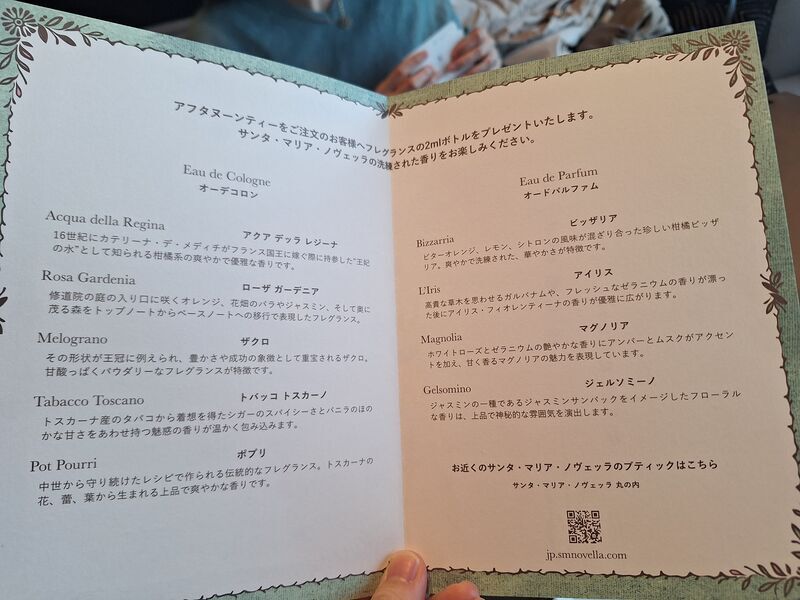 アフタヌーンティーをご注文のお客様へフレグランスの2mlボトルをプレゼントいたします。
サンタ・マリア・ノヴェッラの洗練された香りをお楽しみください。
Eau de Cologne
オーデコロン
Acqua della Regina アクア デッラ レジーナ
16世紀にカテリーナ・デ・メディチがフランス国王に嫁ぐ際に持参した"王妃
の水"として知られる柑橘系の爽やかで優雅な香りです。
Rosa Gardenia ローザ ガーデニア
修道院の庭の入り口に咲くオレンジ、花畑のバラやジャスミン、そして奥に
茂る森をトップノートからベースノートへの移行で表現したフレグランス。
Melograno ザクロ
その形状が王冠に例えられ、豊かさや成功の象徴として重宝されるザクロ。
甘酸っぱくパウダリーなフレグランスが特徴です。
Tabacco Toscano トバッコ トスカーノ
トスカーナ産のタバコから着想を得たシガーのスパイシーさとバニラのほの
かな甘さをあわせ持つ魅惑の香りが温かく包み込みます。
Pot Pourri ポプリ
中世から守り続けたレシピで作られる伝統的なフレグランス。トスカーナの
花、蕾、葉から生まれる上品で爽やかな香りです。
Eau de Parfum
オードパルファム
Bizzarria ビッザリア
ビターオレンジ、レモン、シトロンの風味が混ざり合った珍しい柑橘ビッザ
リア。爽やかで洗練された、華やかさが特徴です。
L'Iris アイリス
高貴な草木を思わせるガルバナムや、フレッシュなゼラニウムの香りが漂っ
た後にアイリス・フィオレンティーナの香りが優雅に広がります。
Magnolia マグノリア
ホワイトローズとゼラニウムの艶やかな香りにアンバーとムスクがアクセン
トを加え、甘く香るマグノリアの魅力を表現しています。
Gelsomino ジェルソミーノ
ジャスミンの一種であるジャスミンサンバックをイメージしたフローラル
な香りは、上品で神秘的な雰囲気を演出します。
お近くのサンタ・マリア・ノヴェッラのブティックはこちら
サンタ・マリア・ノヴェッラ 丸の内
jp.smnovella.com